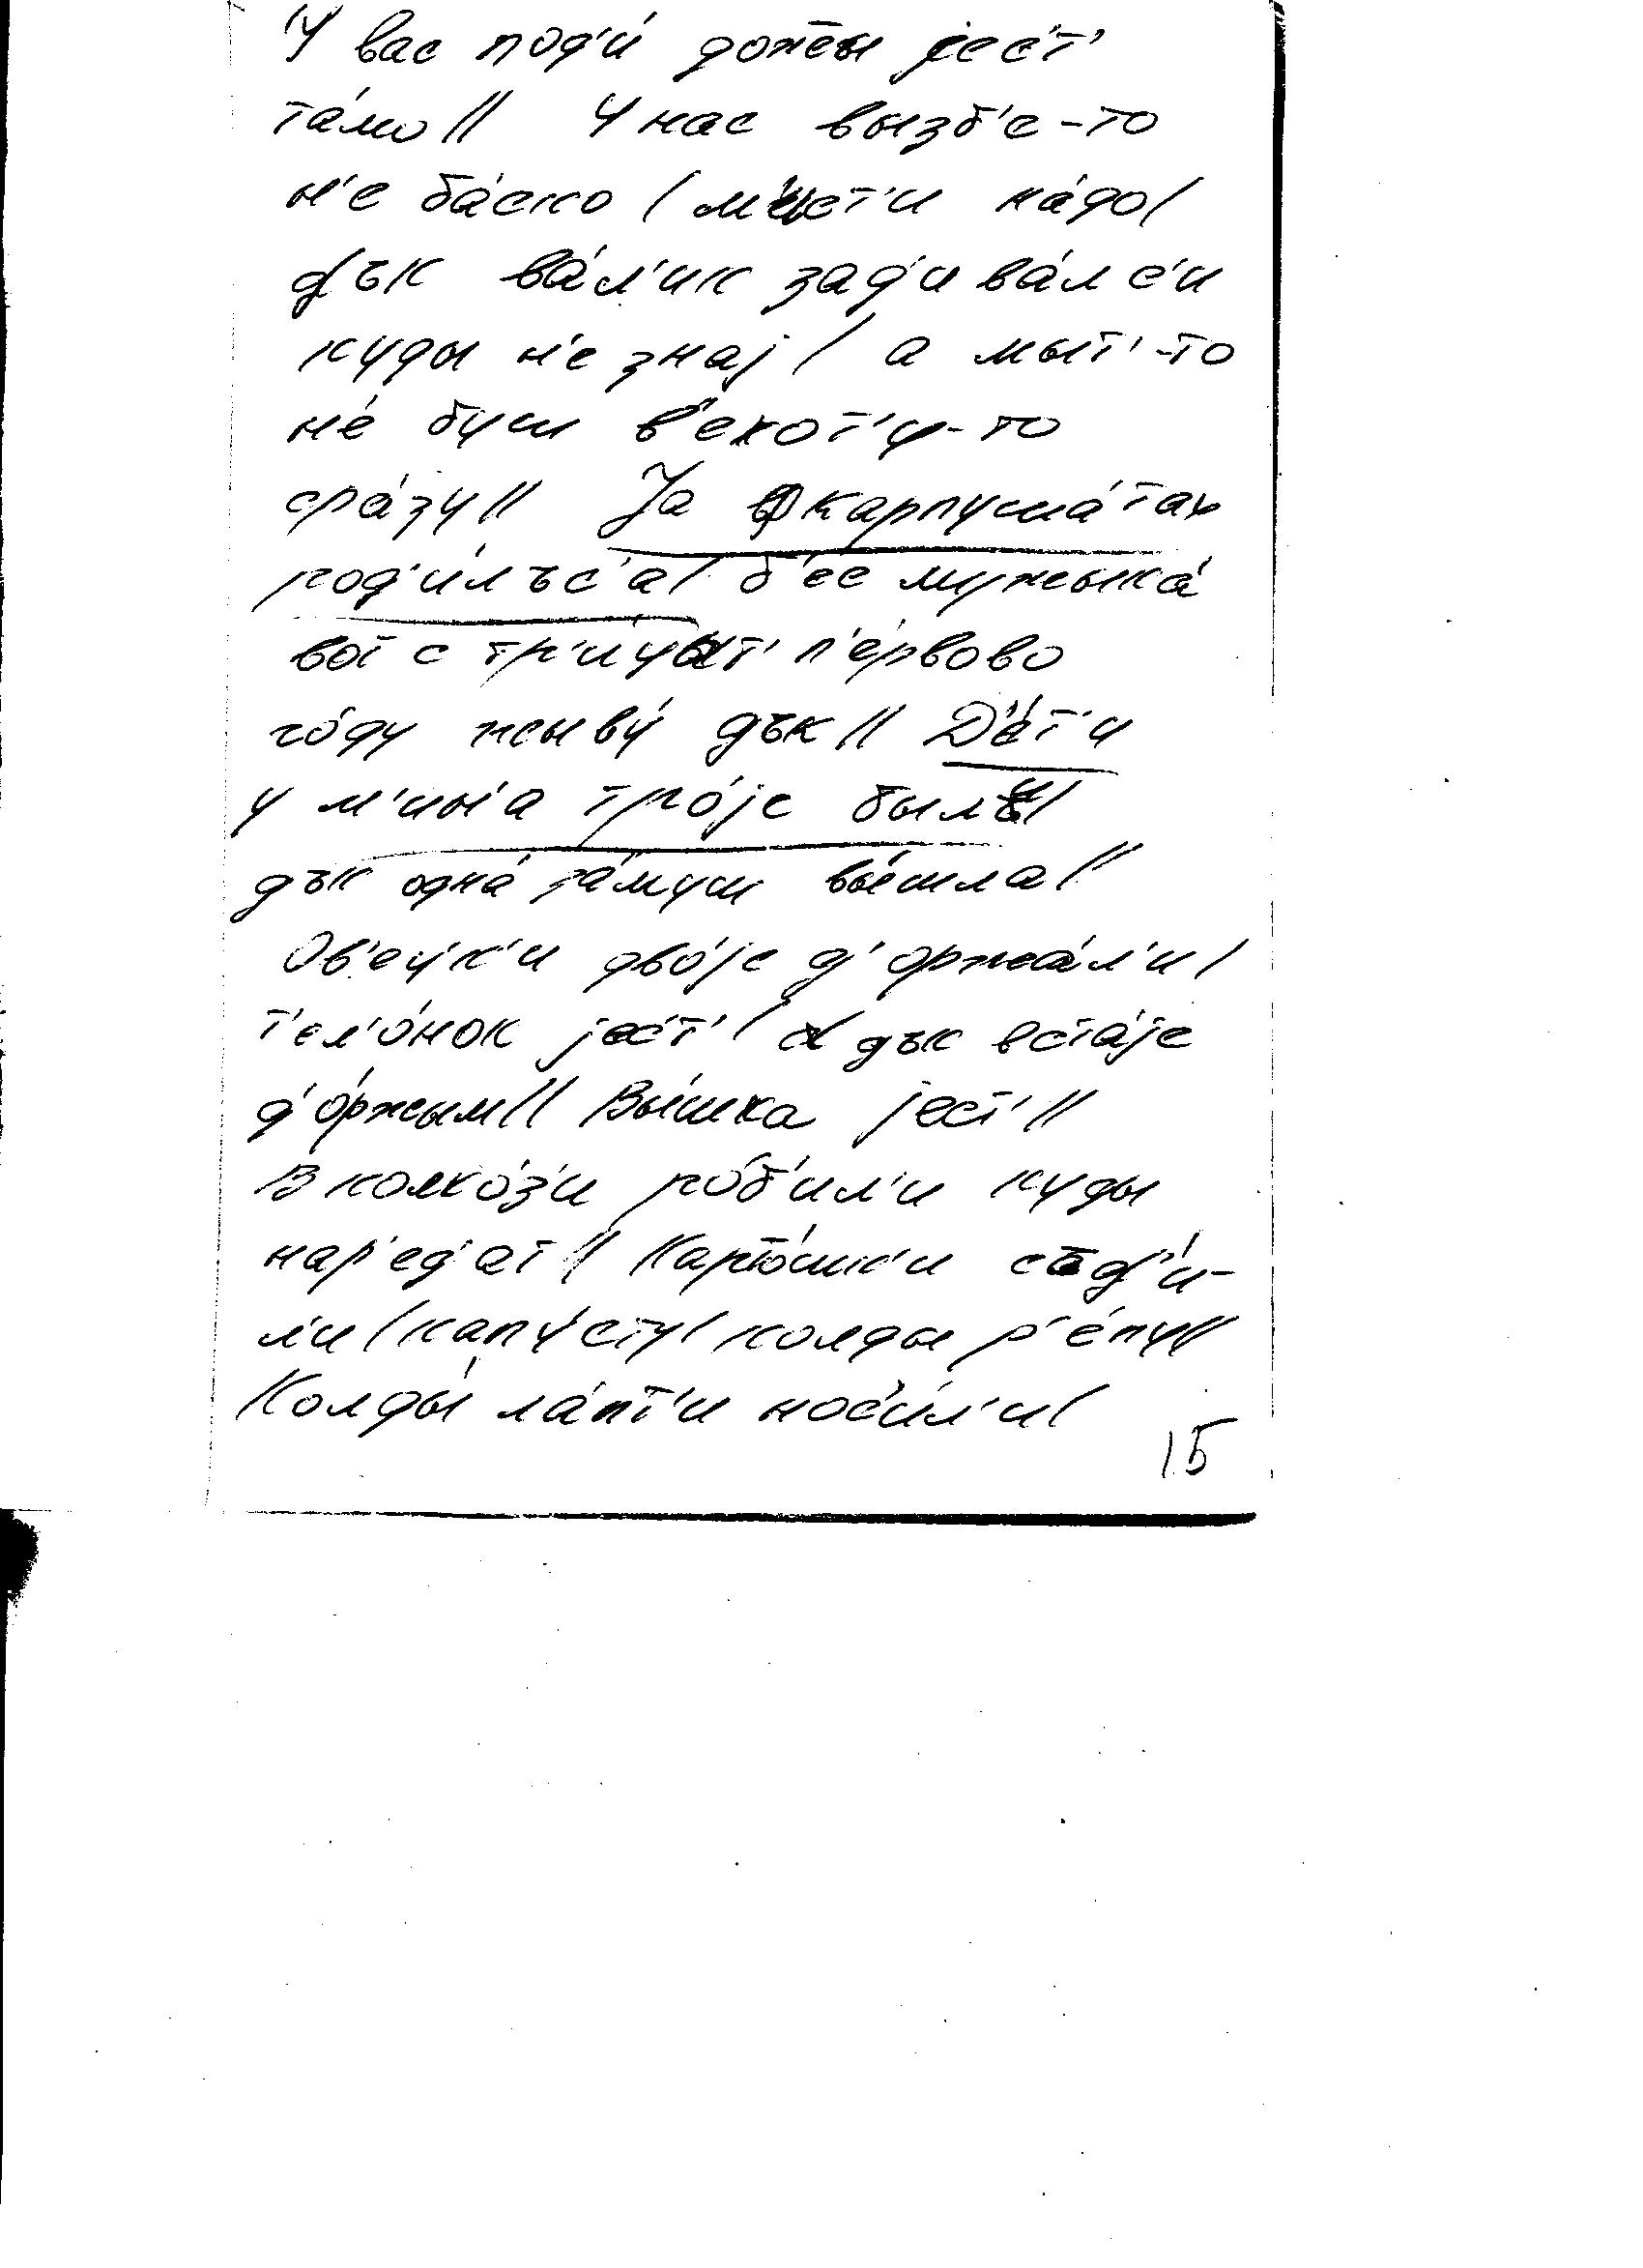 У вас под'и́ дожжы јес'т'
та́мо // У нас вызб'е-то
н'е ба́ско / м'ист'и на́до /
дък ва́л'ик зад'ива́лс'и
куды н'е знај / а мыт'-то
не́ буш в'ехот'и-то
сра́зу // Ја ф карпуша́тах
род'и́лъс'а / б'ес мужыка́
вот с три́цыт' п'е́рвово
го́ду жыву́ дък // Д'е́т'и
у м'ин'а тро́је былʼи /
дък одна́ за́муш вы́шла //
Ов'еч'к'и дво́је д'оржа́л'и /
т'ел'о́нок јес'т' / дък вста́је
д'о́ржым // Вы́шка јест' //
В колхо́з'и ро́б'ил'и куды
нар'ед'ат // Карто́шк'и сад'и́-
ли / капу́сту / колды р'е́пу //
Колды́ ла́пт'и нос'и́л'и /
15